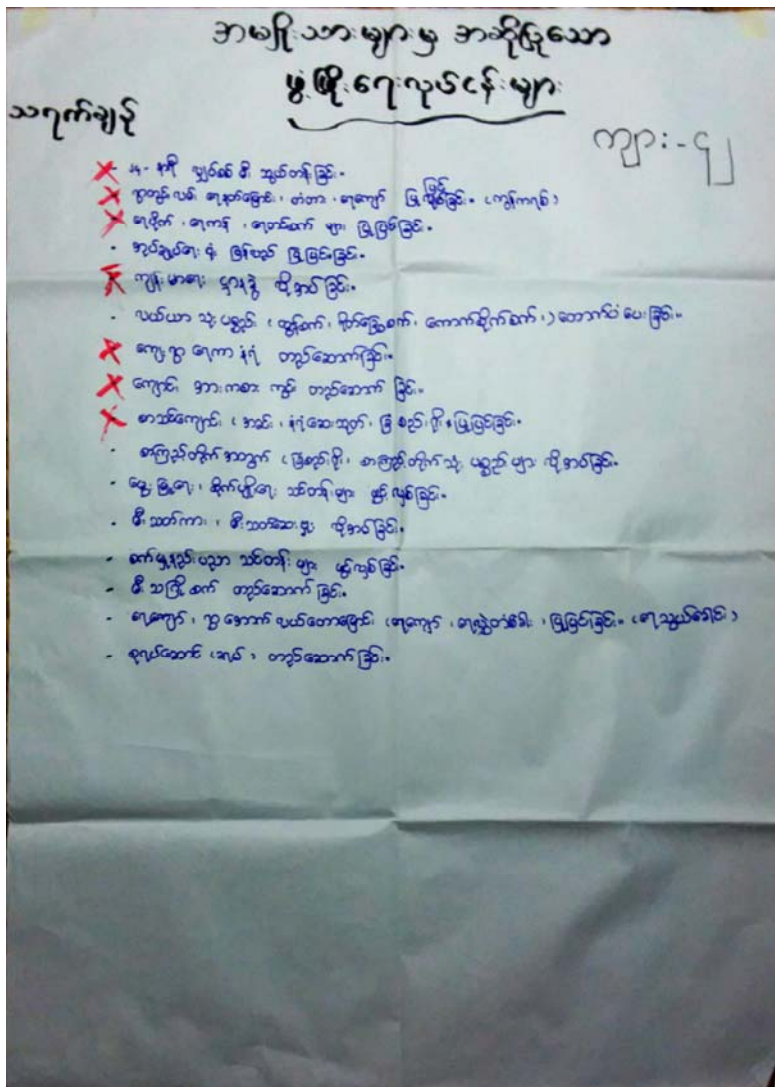 အမျိုးသားများမှ အဆိုပြုသော
ဖွံ့ဖြိုးရေးလုပ်ငန်းများ
သရက်ချို
ကျား - ၄၂
၂၄ - နာရီ လျှပ်စစ် မီး သွယ်တန်းခြင်း။
ရွာတွင်းလမ်း ရေနုတ်မြောင်း၊ တံတား၊ ရေကျော် ပြုပြင်ခြင်း။ (ကွန်ကရစ်)
ရေစိုက်၊ ရေကန်၊ ရေတင်စက် များ ပြုပြင်ခြင်း။
အုပ်ချုပ်ရေး ရုံး ပြန်လည် ပြုပြင်ခြင်း။
ကျန်းမာရေး ဌာနခွဲ လိုအပ်ခြင်း။
လယ်ယာ သုံး ပစ္စည်း (ထွန်စက်၊ ရိတ်ခြွေစက်၊ ကောက်စိုက်စက်၊) ထောက်ပံ့ပေးခြင်း။
ကျေးရွာ ရေကာ နံရံ တည်ဆောက်ခြင်း။
ကျောင်း အားကစား ကွင်း တည်ဆောက် ခြင်း။
စာသင်ကျောင်း (အမိုး၊ နံရံဆေးသုတ်၊ ခြံစည်းရိုး) ပြုပြင်ခြင်း။
စာကြည့်တိုက် အတွက် (ခြံစည်းရိုး၊ စာကြည့်တိုက်သုံး ပစ္စည်းများ လိုအပ်ခြင်း။
မွေးမြူရေး၊ စိုက်ပျိုးရေး သင်တန်းများ ဖွင့်လှစ်ခြင်း။
မီးသတ်ကား၊ မီးသတ်ဆေးဗူး လိုအပ်ခြင်း။
စက်မှုနည်းပညာ သင်တန်း များ ဖွင့်လှစ်ခြင်း။
မီးသင်္ဂြိုဟ်စက် တည်ဆောက် ခြင်း။
ရေကျော်၊ ရွာအောက် လယ်တောမြောင်း (ရေကျော်၊ ရေလွှဲတံခါး၊ ပြုပြင်ခြင်း။ (ရေသွယ်မြောင်း)
ဇရပ်ဆောင် တည်ဆောက်ခြင်း။